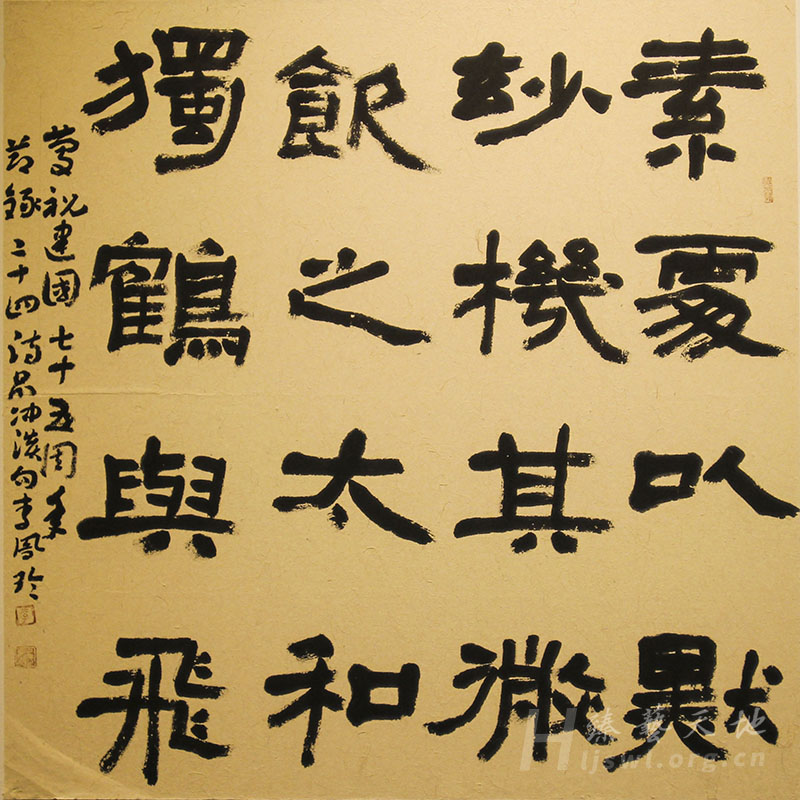 素處以默
玅機其微
飲之太和
獨鶴與飛
慶祝建國七十五周年
节錄二十四诗品冲淡句李鳳玲
臻藝天地
Hljswl.org.cn